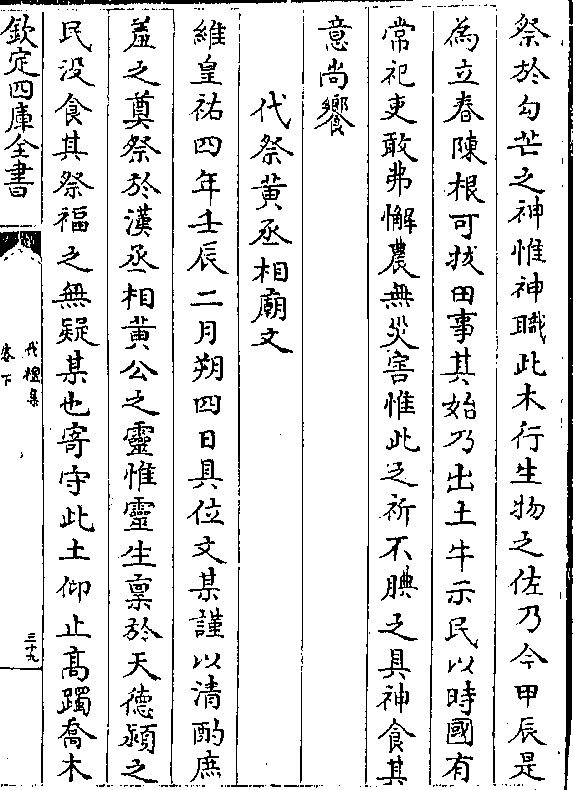 祭於勾芒之神惟神職此木行生物之佐乃今甲辰是
為立春陳根可拔田事其始乃出土牛示民以時國有
常祀吏敢弗懈農無災害惟此之祈不腆之具神食其
意尚饗
代祭黃丞相廟文
維皇祐四年壬辰二月朔四日具位文某謹以清酌庶
羞之奠祭於漢丞相黃公之靈惟靈生稟於天德潁之
民没食其祭福之無疑某也寄守此土仰止高躅喬木
欽定四庫全書
卷下
三十九